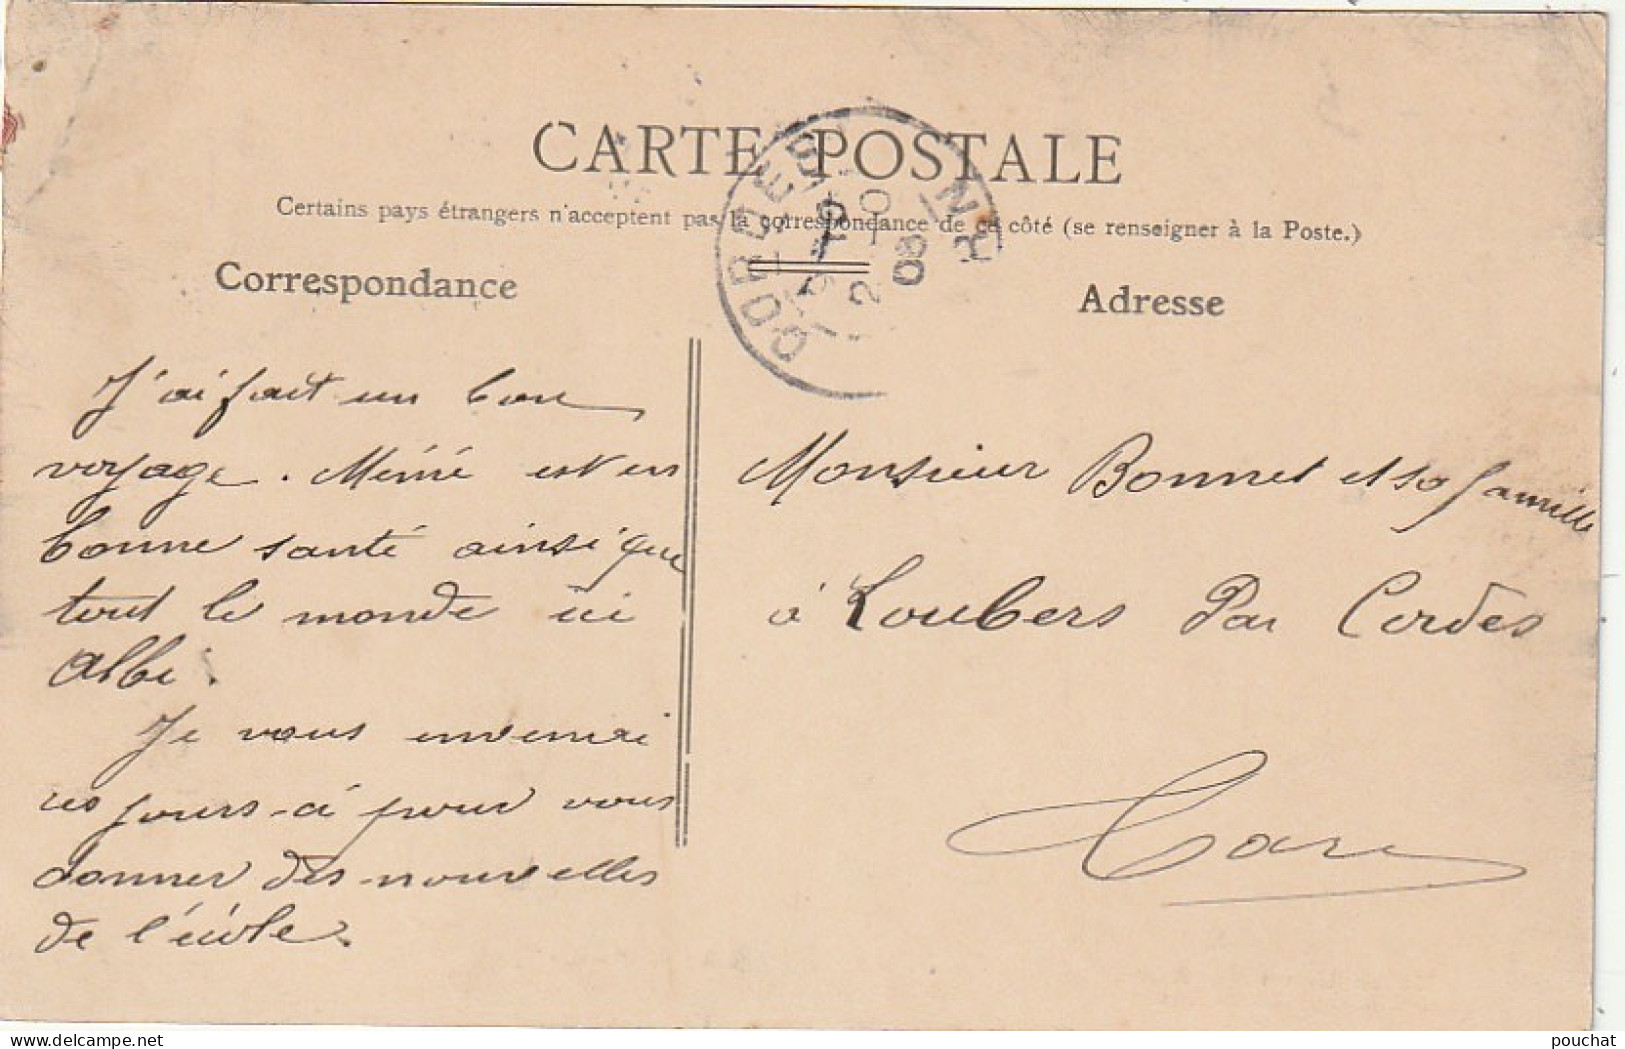 CARTE POSTALE
Certains pays étrangers n'acceptent pas la correspondance de ce côté (se renseigner à la Poste.)
Correspondance
J'ai fait un bon
voyage. Mémé est en
bonne santé ainsi que
tout le monde ici
Albi.
Je vous
ces jours-ci pour vous
donner des nouvelles
de l'école.
Adresse
Monsieur Bonnet et sa famille
à Loubers Par Cordes
Tarn
CORDES
TARN
08
www.delcampe.net
pouchat